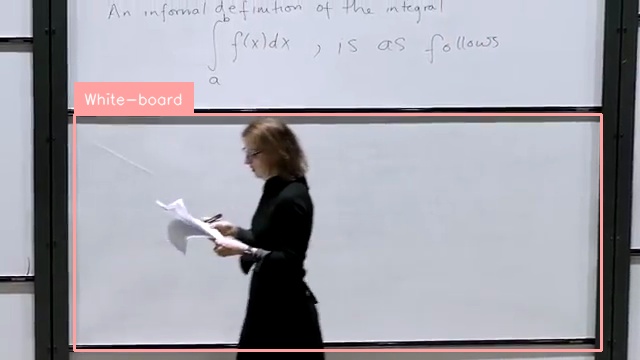 An informal definition of the integral
∫_a^b f(x)dx , is as follows
White-board